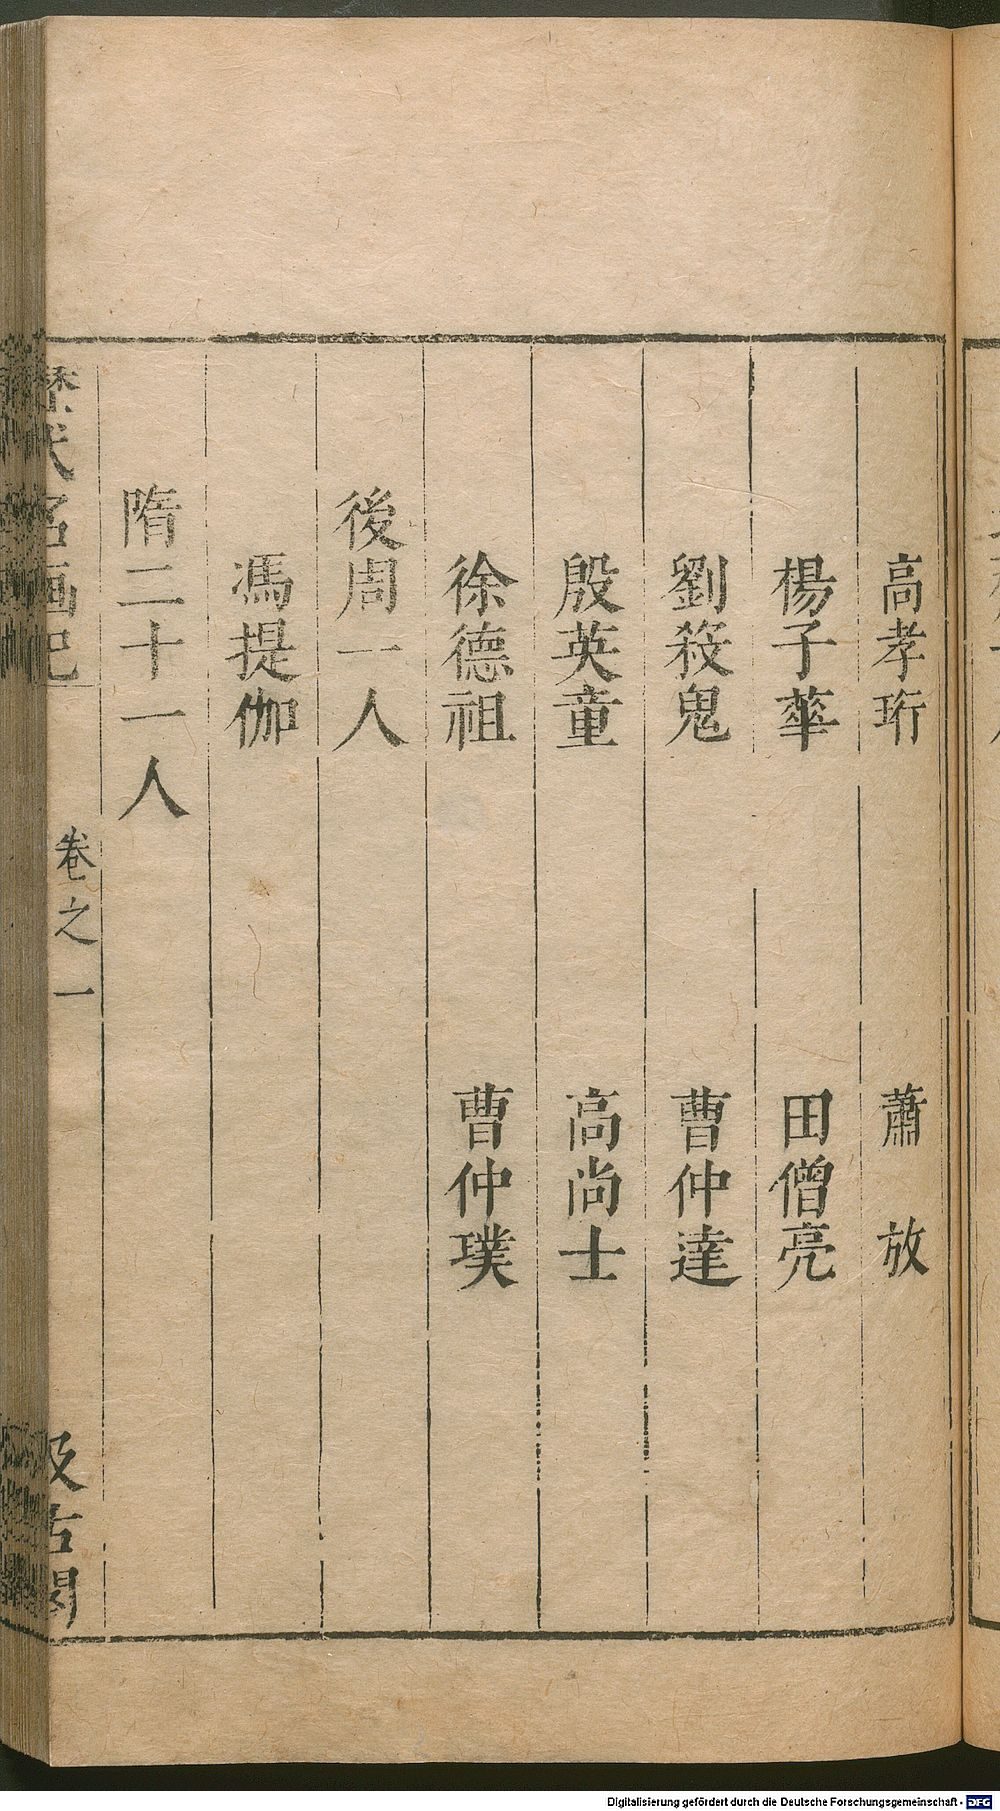 高孝珩 蕭放
楊子華 田僧亮
劉殺鬼 曹仲達
殷英童 高尚士
徐德祖 曹仲璞
後周一人
馮提伽
隋二十一人
歷代名画記 卷之一 汲古閣
Digitalisierung gefördert durch die Deutsche Forschungsgemeinschaft - DFG